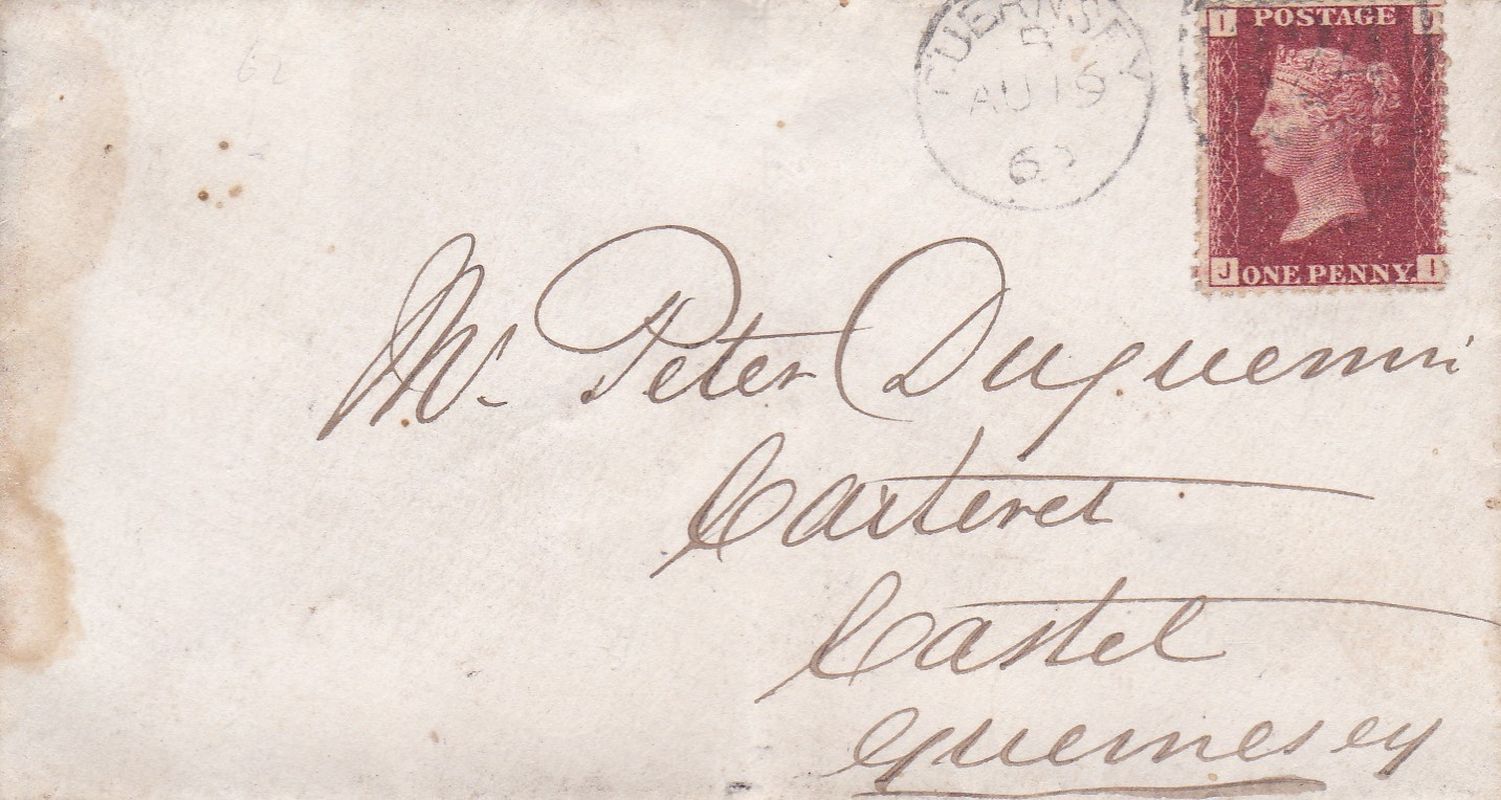 62
GUERNSEY
AU 19
I POSTAGE J
J ONE PENNY I
Mr. Peter Duquemin
Carteret
Castel
Guernesey